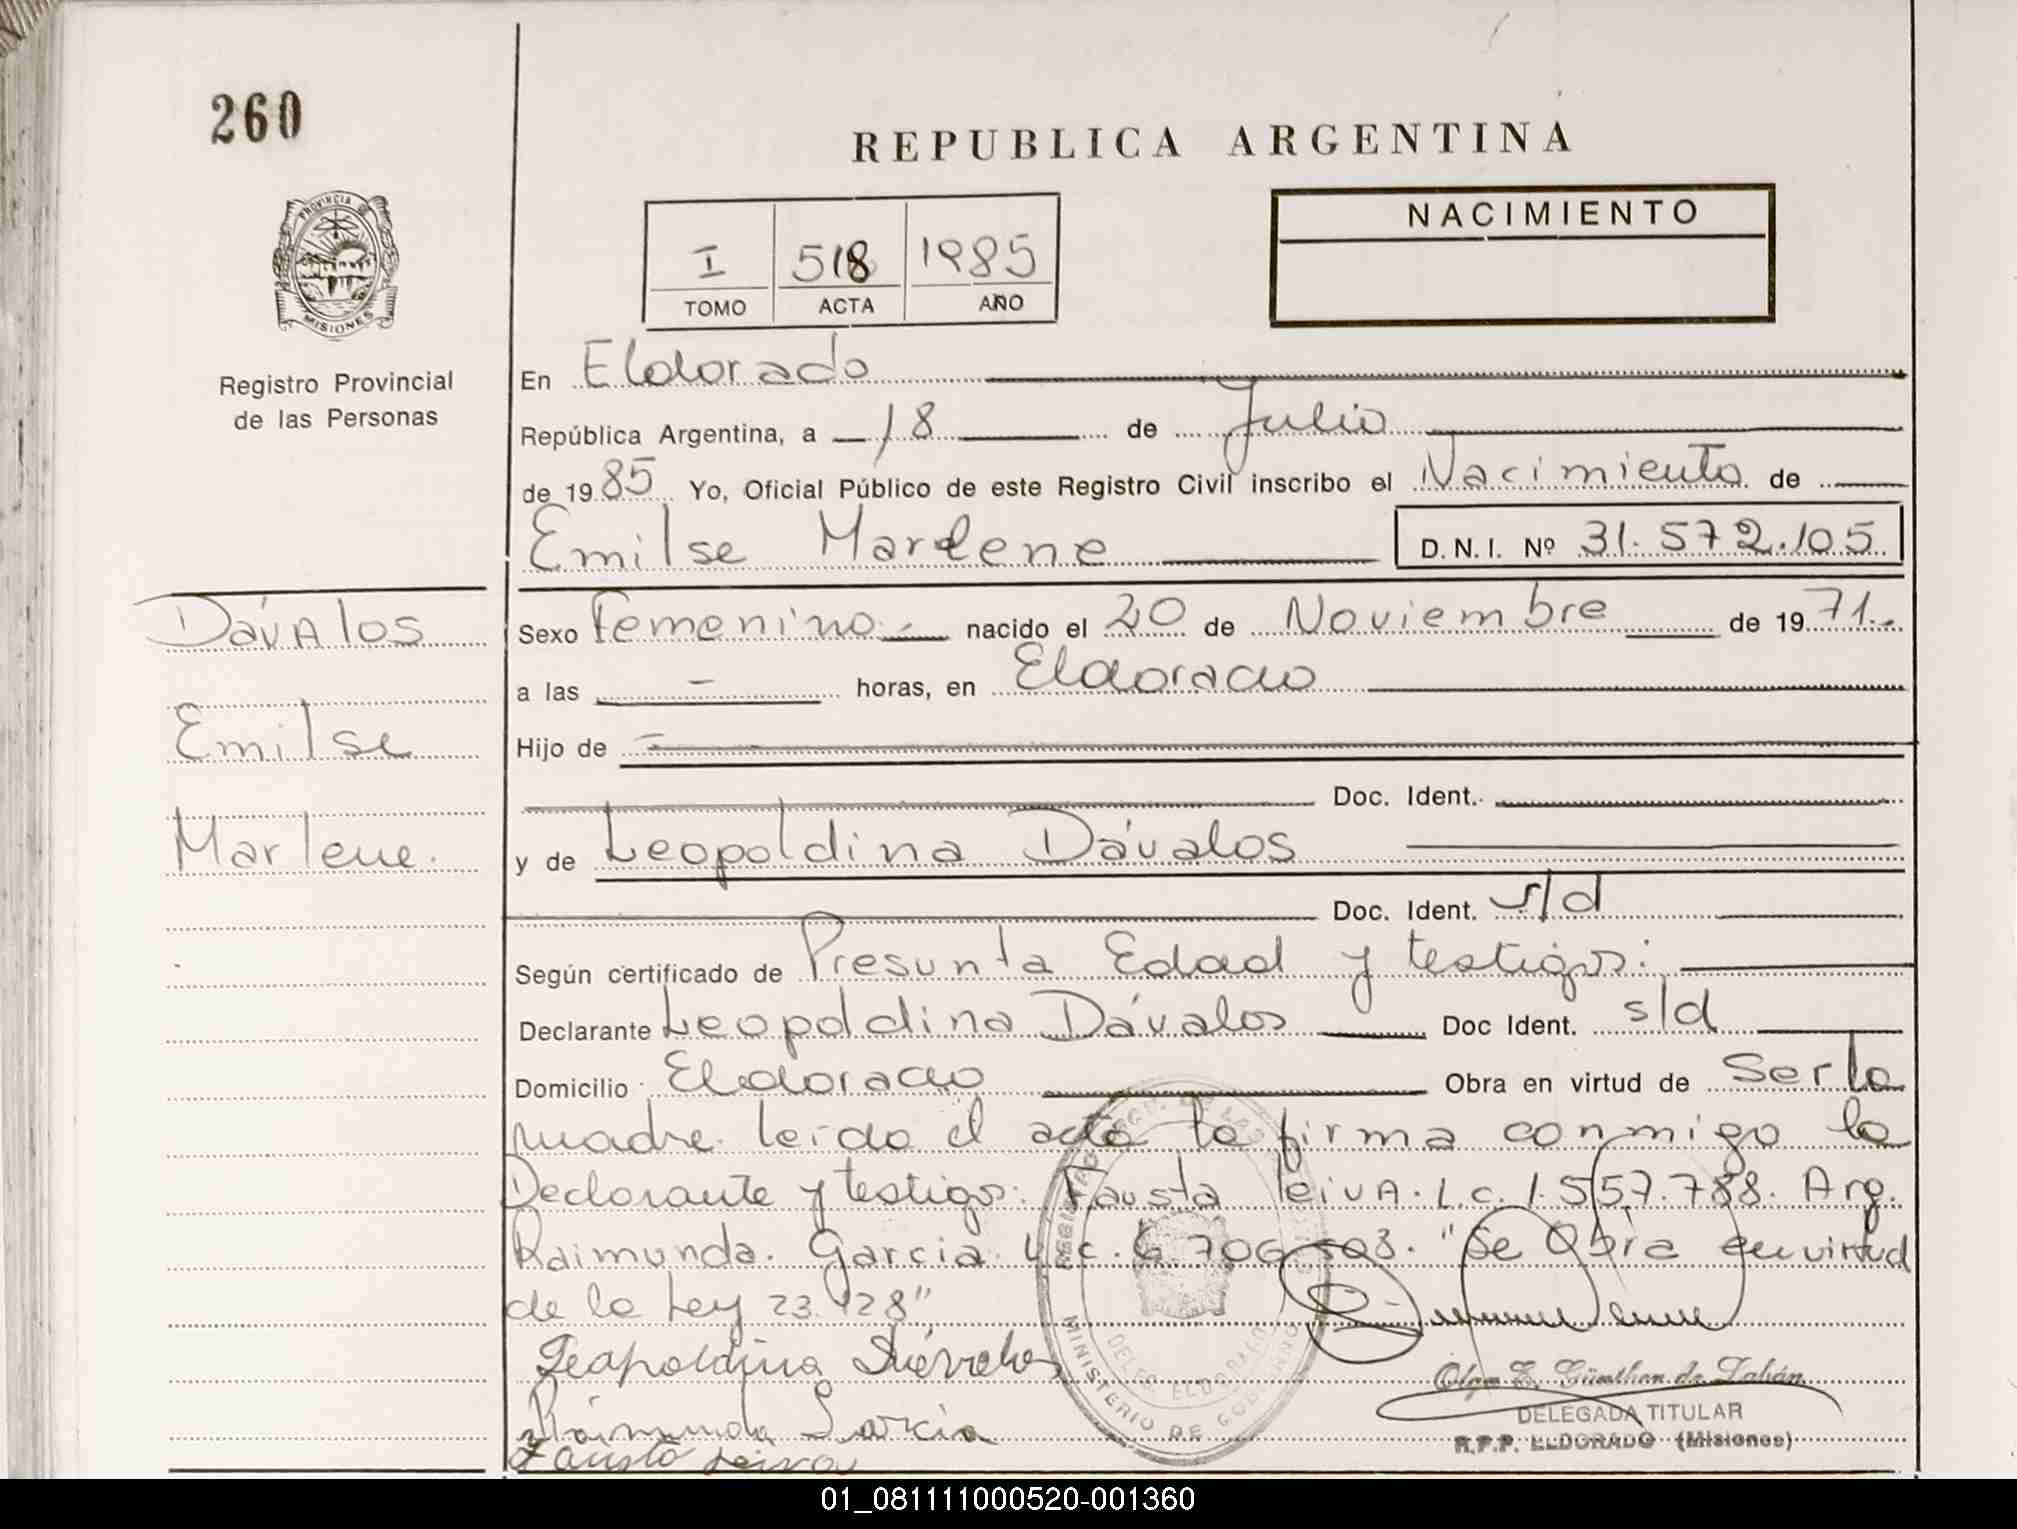 260
REPUBLICA ARGENTINA
PROVINCIA DE
MISIONES
I 518 1985
TOMO ACTA AÑO
NACIMIENTO
Registro Provincial
de las Personas
En Eldorado
República Argentina, a 18 de Julio
de 1985 Yo, Oficial Público de este Registro Civil inscribo el Nacimiento de
Emilse Marlene D.N.I. Nº 31.572.105
Dávalos
Emilse
Marlene.
Sexo Femenino.- nacido el 20 de Noviembre de 1971.-
a las - horas, en Eldorado
Hijo de
Doc. Ident.
y de Leopoldina Dávalos
Doc. Ident. s/d
Según certificado de Presunta Edad y testigos:
Declarante Leopoldina Dávalos Doc Ident. s/d
Domicilio Eldorado Obra en virtud de Ser la
madre. leída el acta la firma conmigo la
Declarante y testigos: Fausta Leiva. L.c. 1.557.788. Arg.
Raimunda. Garcia. L.c. 6.706. "Se Obra en virtud
de la Ley 23.128"
Leopoldina Dávalos
Raimunda Garcia
Fausta Leiva
MINISTERIO DE GOBIERNO
DELEG. ELDORADO
Olga E. Günther de
DELEGADA TITULAR
R.P.P. ELDORADO (Misiones)
01_081111000520-001360